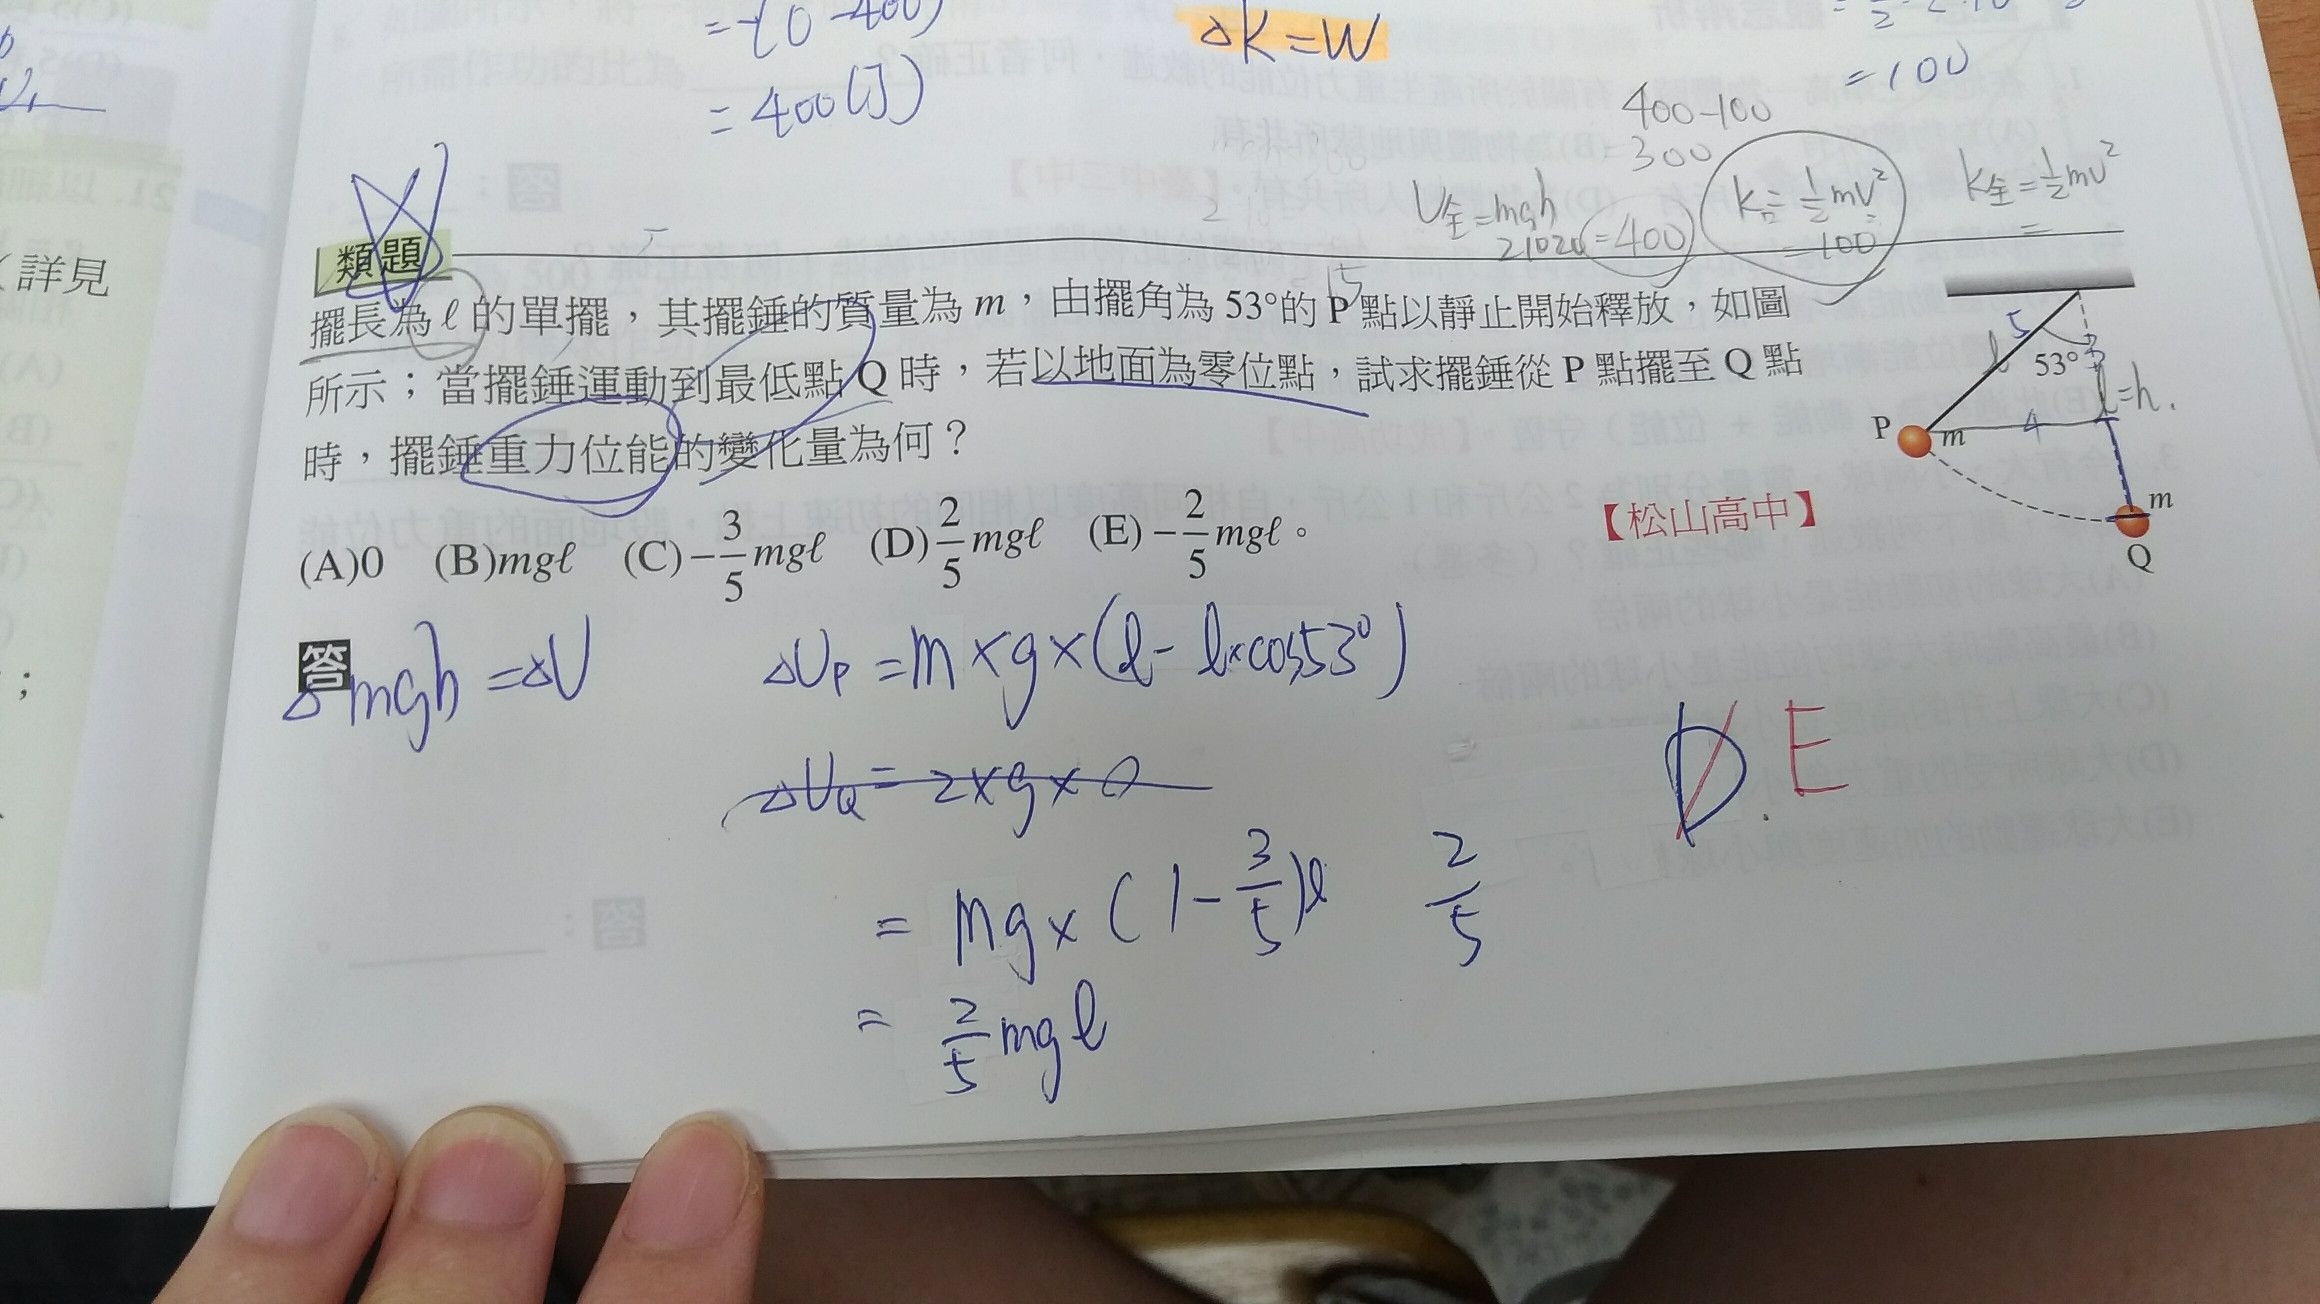 = -(0-400)
= 400(J)
ΔK=W
= 100
400-100
= 300
U全=mgh
21020=400
=½mv²
=100
K全=½mv²
=
(詳見
類題
擺長為ℓ的單擺，其擺錘的質量為m，由擺角為53°的P點以靜止開始釋放，如圖
所示；當擺錘運動到最低點Q時，若以地面為零位點，試求擺錘從P點擺至Q點
時，擺錘重力位能的變化量為何？
【松山高中】
(A)0 (B)mgℓ (C)−3/5mgℓ (D)2/5mgℓ (E)−2/5mgℓ。
5
ℓ
53°
3
ℓ=h.
P
m
4
m
Q
答
Δmgh=ΔU
ΔUP=m×g×(ℓ-ℓ×cos53°)
ΔUQ=2×g×0
D. E
=mg×(1-3/5)ℓ
2/5
=2/5mgℓ
；